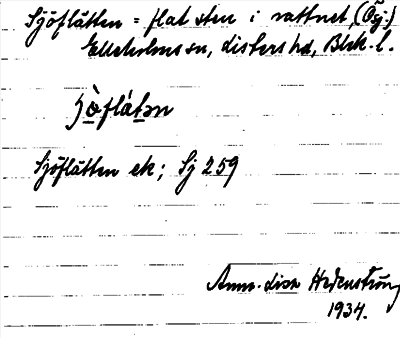 Sjöflåtten = flat sten i vattnet, (Ög.)
Elleholms sn, Listers hd, Blek. l.
Sjöflåtten ek; Sj 259
Anna-Lisa Hedenström
1934.